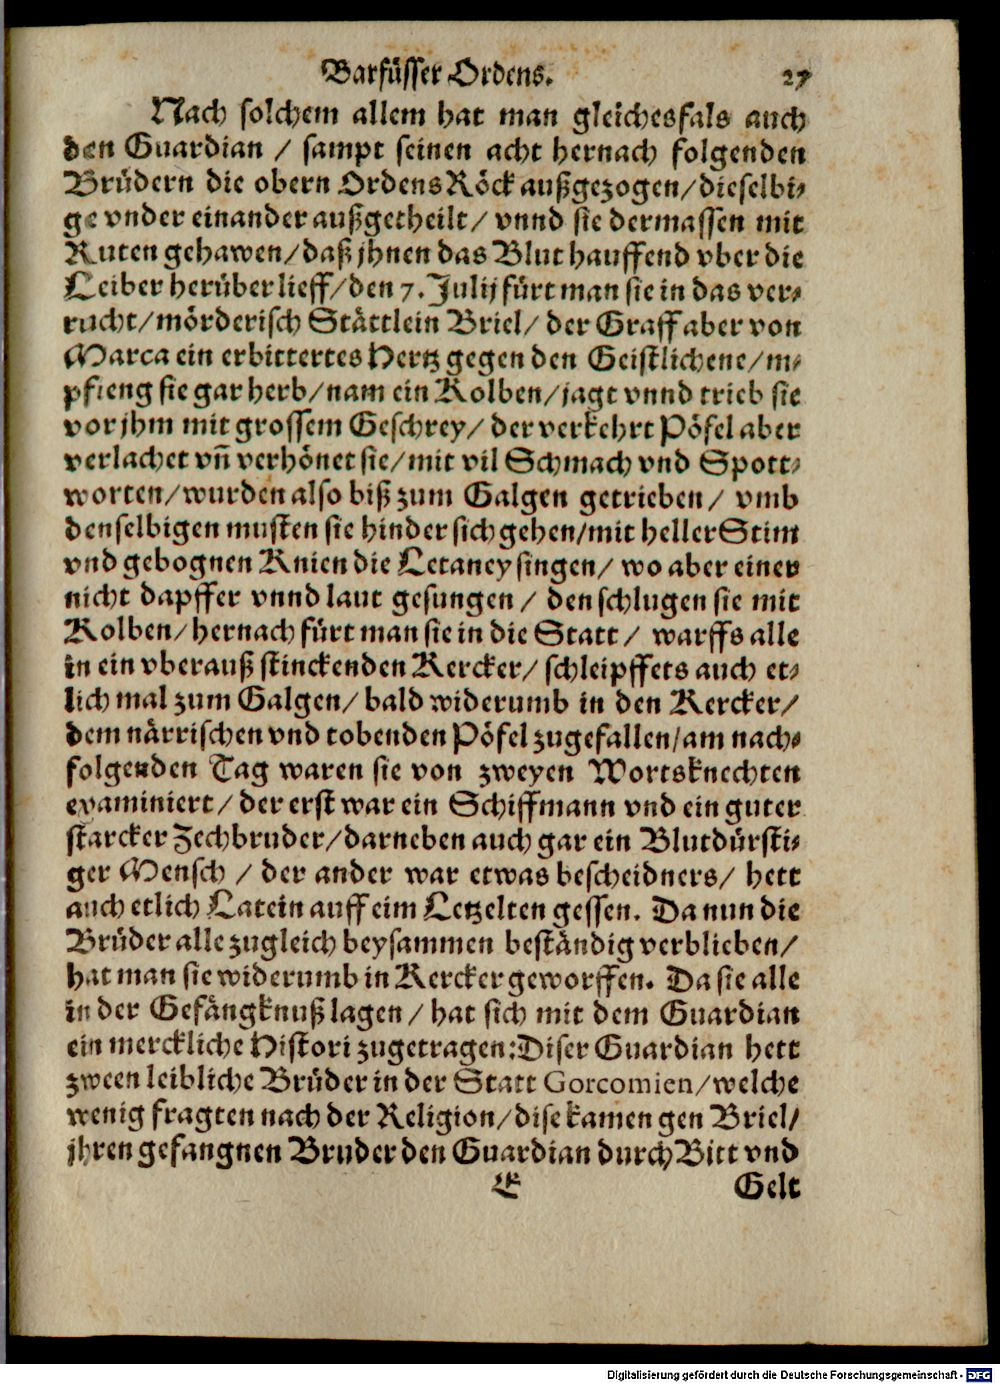 Barfüsser Ordens. 27
Nach solchem allem hat man gleichesfals auch
den Guardian / sampt seinen acht hernach folgenden
Brüdern die obern OrdensRöck außgezogen/dieselbi-
ge vnder einander außgetheilt/ vnnd sie dermassen mit
Ruten gehawen/daß jhnen das Blut hauffend vber die
Leiber herüber lieff/den 7. Julij fürt man sie in das ver-
rucht/mörderisch Stättlein Briel/ der Graff aber von
Marca ein erbittertes Hertz gegen den Geistlichene/m-
pfieng sie gar herb/nam ein Kolben/jagt vnnd trieb sie
vor jhm mit grossem Geschrey/ der verkehrt Pöfel aber
verlachet vñ verhönet sie/mit vil Schmach vnd Spott-
worten/wurden also biß zum Galgen getrieben/ vmb
denselbigen musten sie hinder sich gehen/mit heller Stim
vnd gebognen Knien die Letaney singen/ wo aber einer
nicht dapffer vnnd laut gesungen / den schlugen sie mit
Kolben/hernach fürt man sie in die Statt/ warffs alle
in ein vberauß stinckenden Kercker/ schleipffets auch et-
lich mal zum Galgen/ bald widerumb in den Kercker/
dem närrischen vnd tobenden Pöfel zugefallen/am nach-
folgenden Tag waren sie von zweyen Wortsknechten
examiniert/ der erst war ein Schiffmann vnd ein guter
starcker Zechbruder/darneben auch gar ein Blutdürsti-
ger Mensch / der ander war etwas bescheidners/ hett
auch etlich Latein auff eim Letzelten gessen. Da nun die
Brüder alle zugleich beysammen beständig verblieben/
hat man sie widerumb in Kercker geworffen. Da sie alle
in der Gefängknuß lagen/ hat sich mit dem Guardian
ein merckliche Histori zugetragen:Diser Guardian hett
zween leibliche Brüder in der Statt Gorcomien/welche
wenig fragten nach der Religion/dise kamen gen Briel/
jhren gefangnen Bruder den Guardian durch Bitt vnd
E Gelt
Digitalisierung gefördert durch die Deutsche Forschungsgemeinschaft - DFG